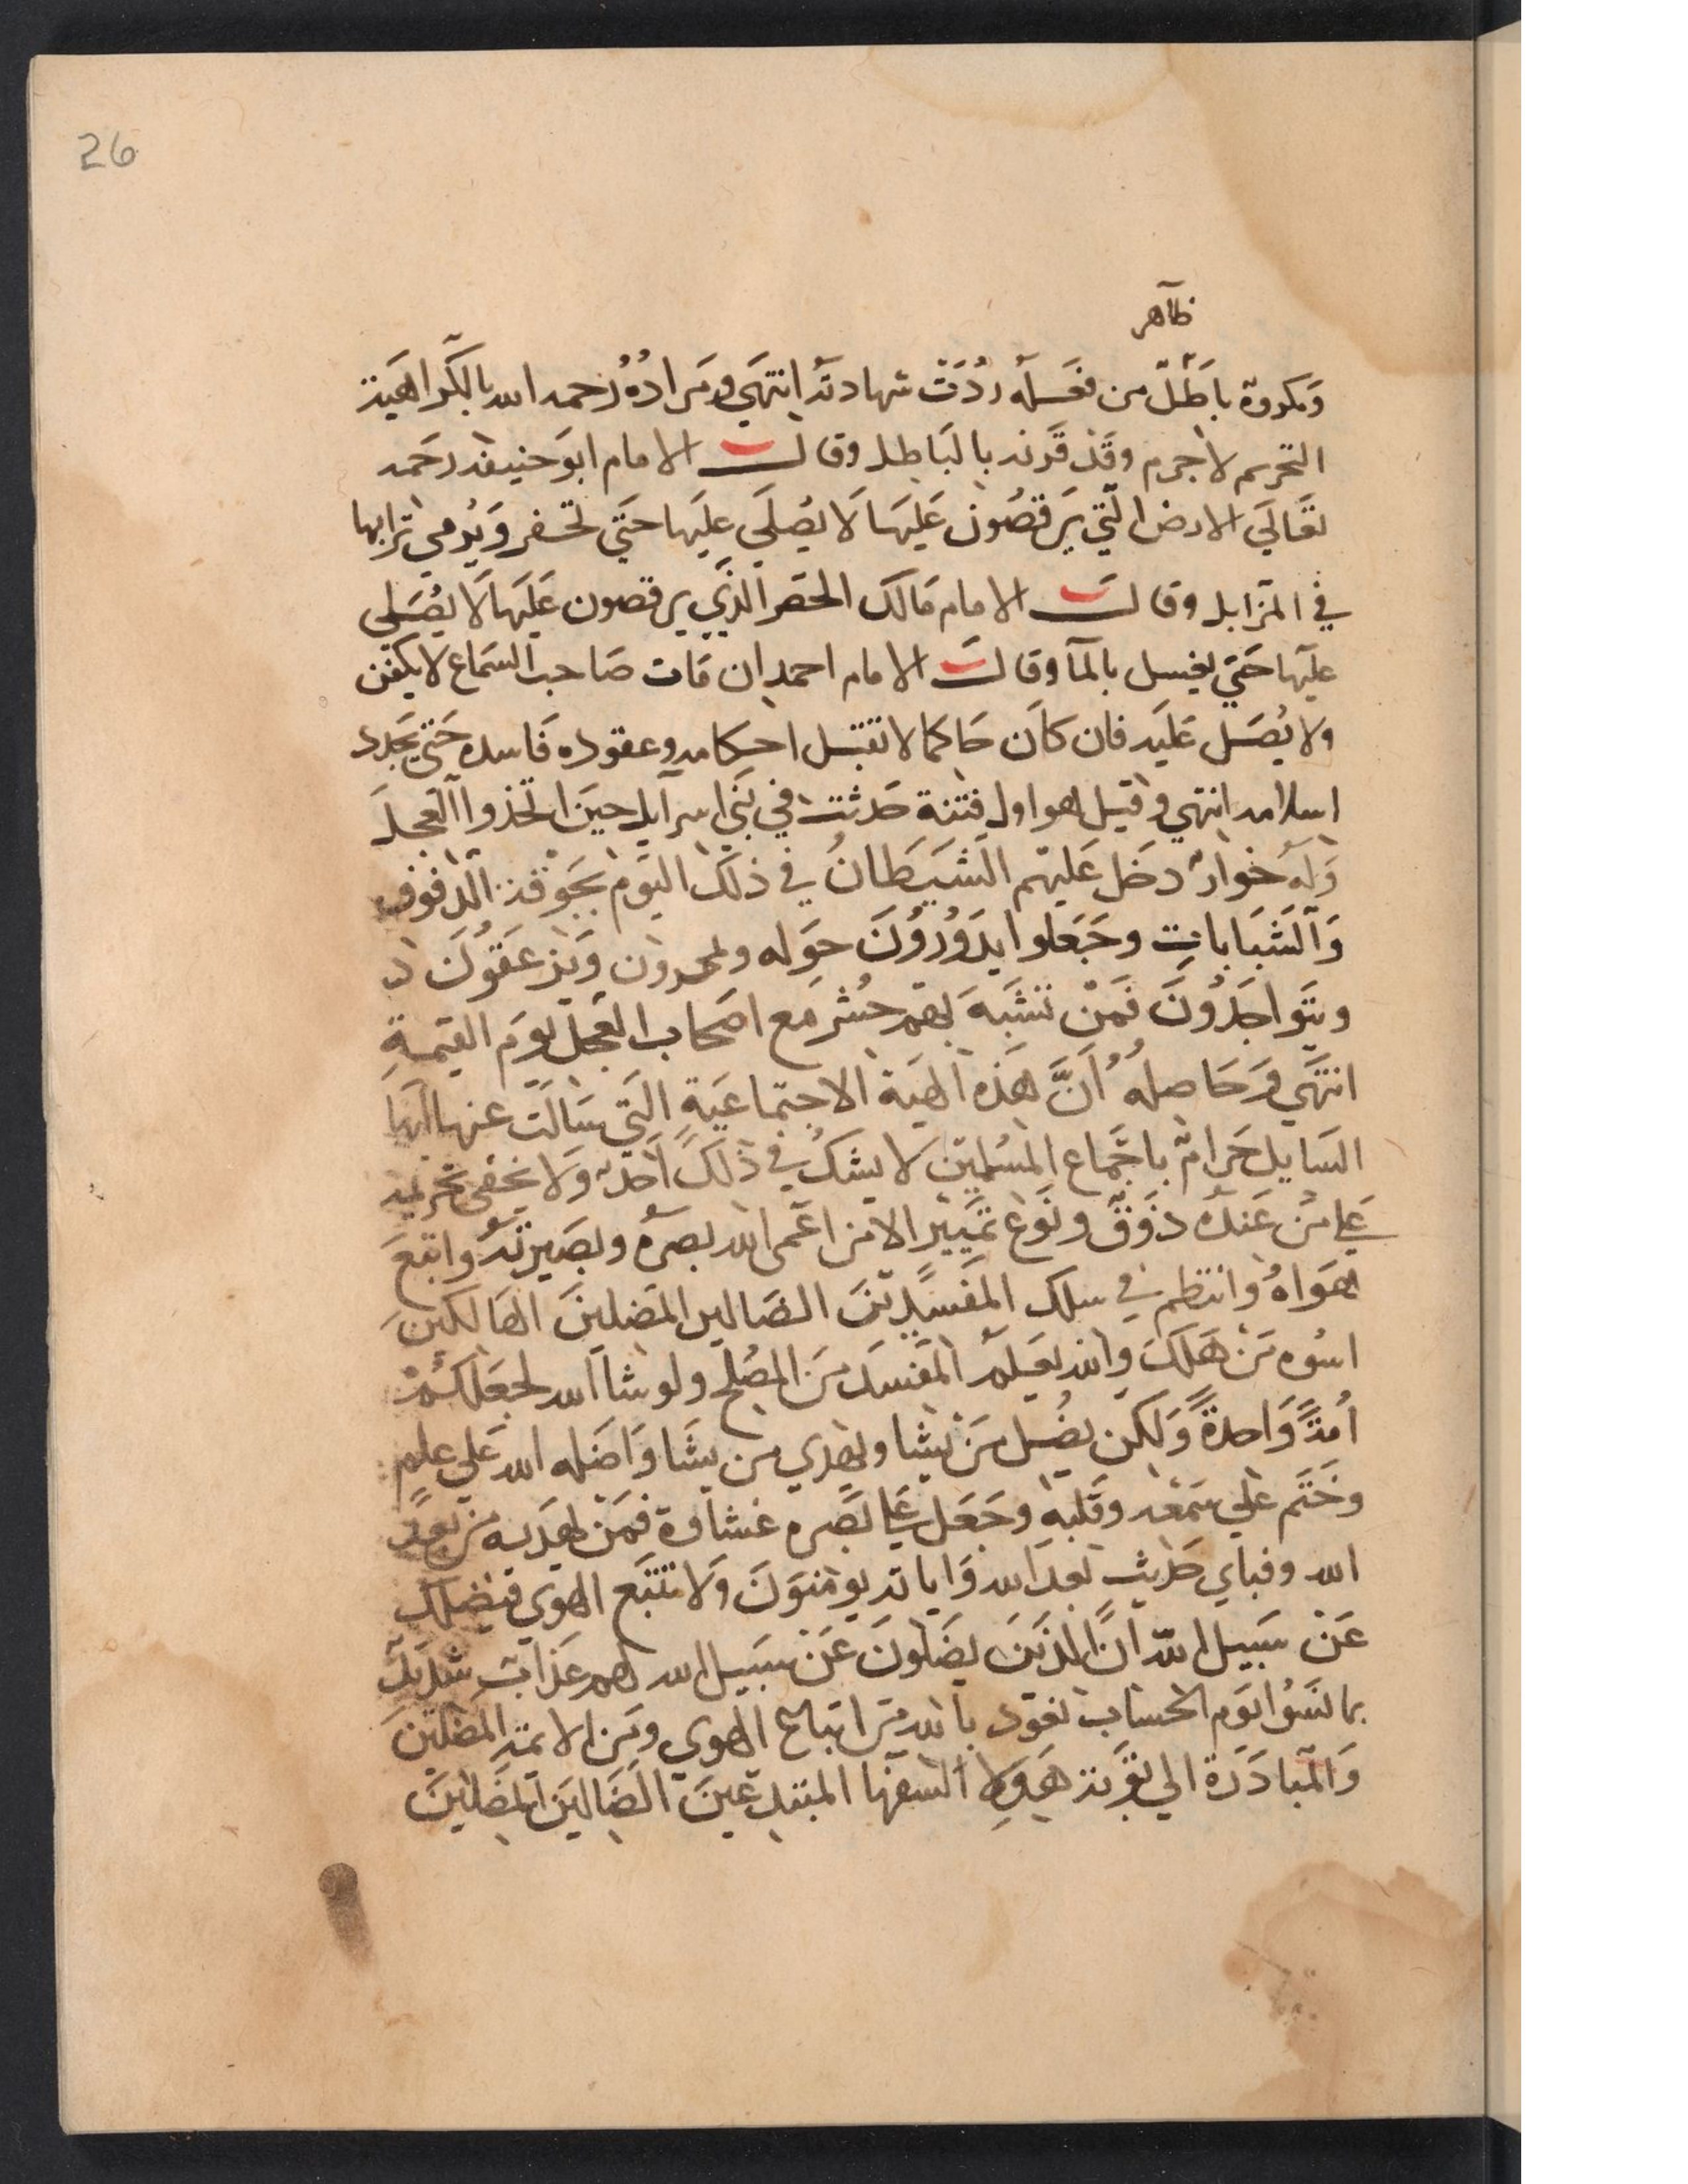 26
ظاهر
وَمكروة بَاطْلٌ من فعَسَلهُ ردُدَتْ شهادتهُ انتهَي ومَرادُهُ رُحمه الله بالكَراهَية
التحريم لاجرم وقَد قَرنه بالبَاطل وقالــت الامام ابوَحنيفه رحَمه
تعَالَي الارض التَّي يَرقصُون عَليَها لَا يصُلَي علَيَها حتَي تحفر وَيُرمي ترابها
في المزَابل وقالــت الامام مَالك الحصَر الذَّي يرقصون عَليَها لَا يصُلي
عليَها حتَي يغسل بالمآ وقالــت الامام احمد ان مَات صَاحب السَماع لا يكفن
ولا يُصَل عَليَه فان كاَن حَاكما لا تقبل احكامه وعقوده فَاسده حتَي يجَدد
اسلامه انتهي وقيل هو اول فتنة حَدثت في بنَي اسرآيل حيَن اتخذوا العَجلَ
وَلهُ خوارٌ دخَل عَليهم الشَيَطانُ في ذلَك اليَوم بجَوقة الدفوف
وَالشَبَاباتِ وجَعَلوا يدَوُرُونَ حوَله ويحمدون وَيزعقَوُنَ
ويتَواجَدُونَ فمَنْ تشَبهَ بهم حُشر مَع اصحَاب العَجل يوَم القيمةِ
انتهَي وَحَاصلهُ أنَّ هَذه الهيَة الاجتماعَيةِ التَي سَالَت عنها ايَها
السَايل حَرامٌ باجَماع المسُلمين لا يشك في ذلَك احَد وَلا يخفي تحريمه
عَلي مَن عنَدهُ ذوَقٌ ونوَع تميَيز الا من اعَمى الله بصَرهُ وبصَيرتهُ واتبَعَ
هَوَاهُ وانتظم في سلك المفَسَديَن الضَالين المضَلينَ الهَالكينَ
اسوُه مَن هَلكَ والله يعَلمُ المفسدَ مَن المصُلح ولو شاَ الله لجعَلكُمْ
اُمةً وَاحدةً وَلكن يضُل مَن يشَا ويهَدي من يشَا وَاضَله الله عَلي علمٍ
وخَتَم عَلي سَمعَه وقَلبهِ وجَعَل عَلي بَصَره غشَاوة فمَن يهَديه من بعَد
الله وفباي حَديث بَعدَ الله وَاياته يومنوَن وَلا تتبَع الهوي فيَضلك
عَن سَبيل الله انَّ الذينَ يضَلونَ عَن سَبيل الله لهم عَذابٌ شدَيدٌ
بما نسَوُا يوَم الحسَاب نعَوذ بالله مَن اتبَاع الهوي ومَن الايمَة المضَلينَ
وَالمبَادَرة الي توَبة هَولآ السفها المبتدعَينَ الضَالينَ المضَلينَ